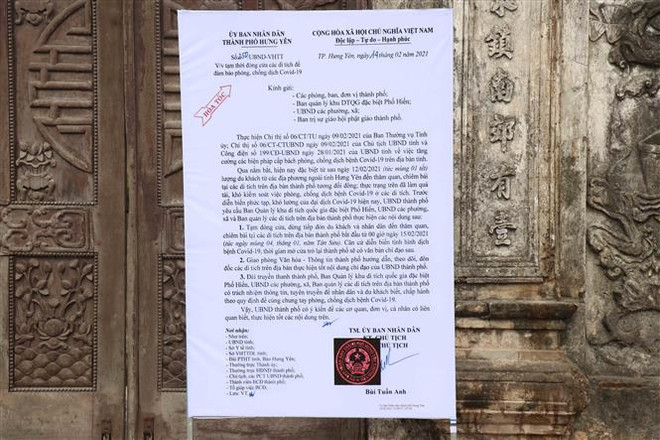 ỦY BAN NHÂN DÂN
THÀNH PHỐ HƯNG YÊN
CỘNG HÒA XÃ HỘI CHỦ NGHĨA VIỆT NAM
Độc lập - Tự do - Hạnh phúc
/UBND-VHTT
TP. Hưng Yên, ngày 14 tháng 02 năm 2021
V/v tạm thời đóng cửa các di tích để
đảm bảo phòng, chống dịch Covid-19
HỎA TỐC
Kính gửi:
- Các phòng, ban, đơn vị thành phố;
- Ban quản lý khu DTQG đặc biệt Phố Hiến;
- UBND các phường, xã;
- Ban trị sự giáo hội phật giáo thành phố.
Thực hiện Chỉ thị số 06/CT/TU ngày 09/02/2021 của Ban Thường vụ Tỉnh
ủy; Chỉ thị số 06/CT-CTUBND ngày 09/02/2021 của Chủ tịch UBND tỉnh và
Công điện số 199/CĐ-UBND ngày 28/01/2021 của UBND tỉnh về việc tăng
cường các biện pháp cấp bách phòng, chống dịch bệnh Covid-19 trên địa bàn tỉnh.
Qua nắm bắt, hiện nay đặc biệt từ sau ngày 12/02/2021 (tức mùng 01 tết)
lượng du khách từ các địa phương ngoài tỉnh Hưng Yên đến thăm quan, chiêm bái
tại các di tích trên địa bàn thành phố tương đối đông; thực trạng trên đã làm quá
tải, khó kiểm soát việc phòng, chống dịch bệnh Covid-19 ở các di tích. Trước
diễn biến phức tạp, khó lường của đại dịch Covid-19 hiện nay, UBND thành phố
yêu cầu Ban Quản lý khu di tích quốc gia đặc biệt Phố Hiến, UBND các phường,
xã và Ban Quản lý các di tích trên địa bàn thành phố thực hiện các nội dung sau:
1. Tạm đóng cửa, dừng tiếp đón du khách và nhân dân đến thăm quan,
chiêm bái tại các di tích trên địa bàn thành phố bắt đầu từ 00 giờ ngày 15/02/2021
(tức ngày mùng 04, tháng 01, năm Tân Sửu). Căn cứ diễn biến tình hình dịch
bệnh Covid-19, thời gian mở cửa trở lại thành phố sẽ có văn bản chỉ đạo sau.
2. Giao phòng Văn hóa - Thông tin thành phố hướng dẫn, theo dõi, đôn
đốc các di tích trên địa bàn thực hiện tốt nội dung chỉ đạo của UBND thành phố.
3. Đài truyền thanh thành phố, Ban Quản lý khu di tích quốc gia đặc biệt
Phố Hiến, UBND các phường, xã, Ban Quản lý các di tích trên địa bàn thành phố
có trách nhiệm thông tin, tuyên truyền để nhân dân và du khách biết, chấp hành
theo quy định để cùng chung tay phòng, chống dịch bệnh Covid-19.
Vậy, UBND thành phố có ý kiến để các cơ quan, đơn vị, cá nhân có liên
quan biết, thực hiện tốt các nội dung trên./.
Nơi nhận:
- Như trên;
- UBND tỉnh;
- Sở Y tế tỉnh;
- Sở VHTTDL tỉnh;
- Đài PTTH tỉnh, Báo Hưng Yên;
- Thường trực Thành ủy;
- Thường trực HĐND thành phố;
- Chủ tịch, các PCT UBND thành phố;
- Thành viên BCĐ thành phố;
- Tổ giúp việc BCĐ;
- Lưu: VT.
TM. ỦY BAN NHÂN DÂN
KT. CHỦ TỊCH
CHỦ TỊCH
Bùi Tuấn Anh
鎮
南
郊
有
喜